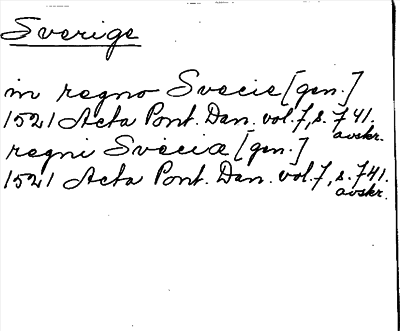 Sverige
in regno Svecie [gen.]
1521 Acta Pont. Dan. vol. 7, s. 741.
avskr.
regni Sveciæ [gen.]
1521 Acta Pont. Dan. vol. 7, s. 741.
avskr.